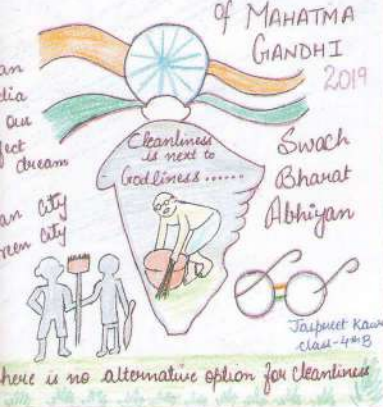 of MAHATMA
GANDHI
2019
an
dia
our
ject dream
an City
reen City
Cleanliness
is next to
Godliness......
Swach
Bharat
Abhiyan
Jaspreet Kaur
class-4th B
here is no alternative option for cleanliness